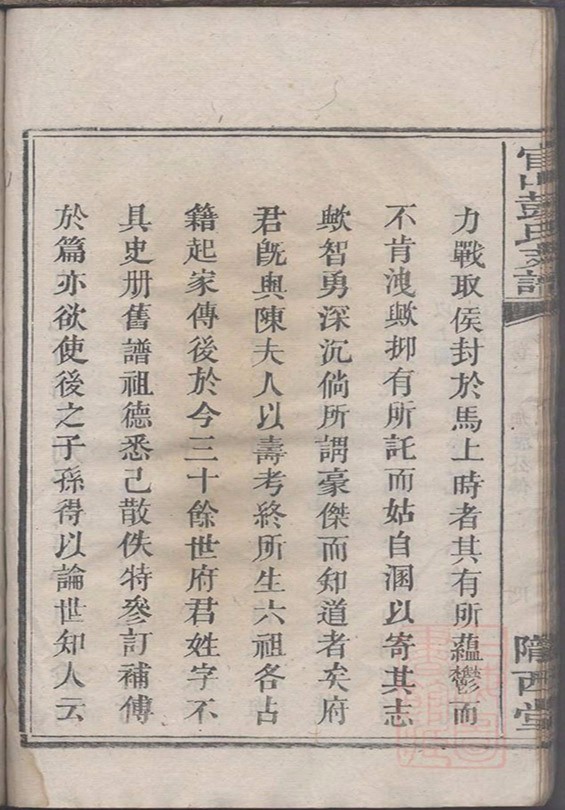 官山彭氏支譜
隴西堂
力戰取侯封於馬上時者其有所蘊鬱而
不肯洩歟抑有所託而姑自溷以寄其志
歟智勇深沉倘所謂豪傑而知道者矣府
君旣與陳夫人以壽考終所生六祖各占
籍起家傳後於今三十餘世府君姓字不
具史册舊譜祖德悉已散佚特參訂補傳
於篇亦欲使後之子孫得以論世知人云